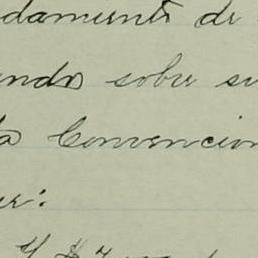 damiento de
ando sobre su
ta Convencion
er: